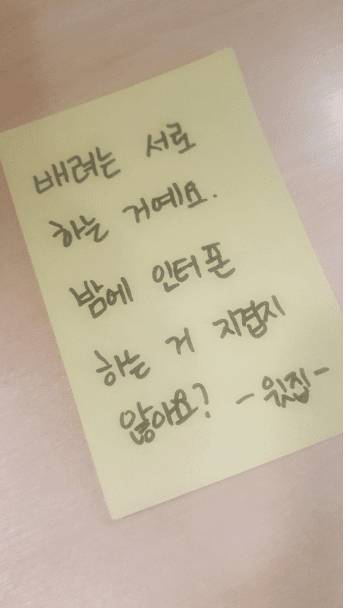 배려는 서로
하는 거예요.
밤에 인터폰
하는 거 지겹지
않아요? -윗집-